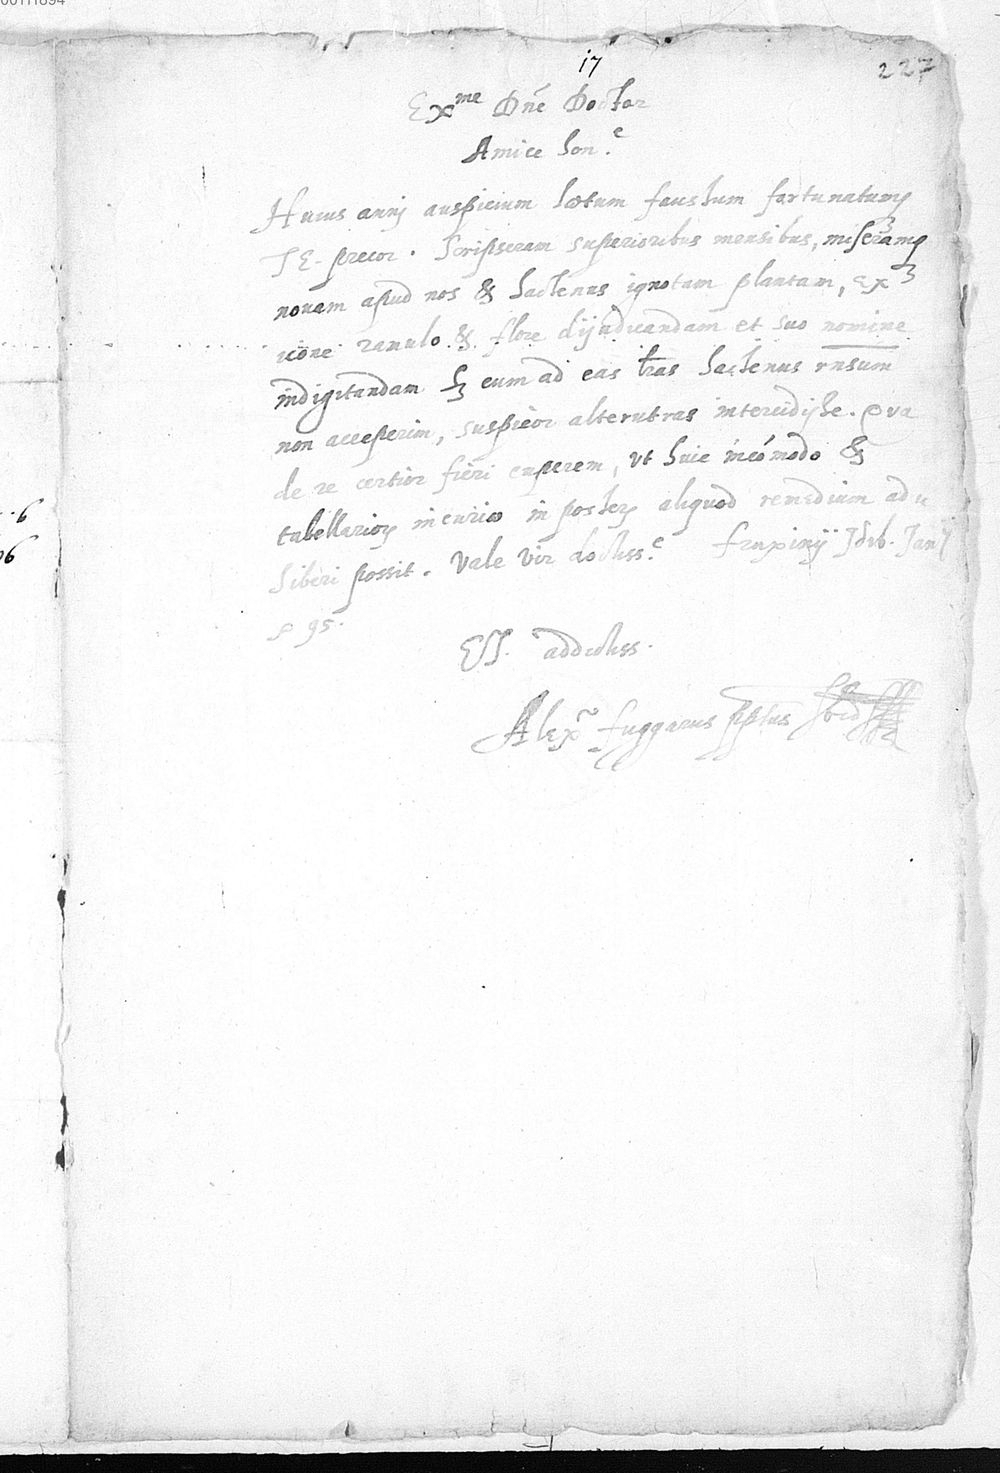 17
227
Exme Dne Doctor
Amice hon.e
Huius annj auspicium lætum faustum fortunatumq
TE precor. Scripseram superioribus mensibus, miseramq
novam apud nos & hactenus ignotam plantam, ex
icone ramulo & flore dijudicandam et suo nomine
indigitandam cum ad eas lras hactenus rnsum
non acceperim, suspicor alterutras intercidisse. Qva
de re certior fieri cuperem, vt huic incómodo &
tabellarior incuriæ in poster aliquod remedium ad
hiberi possit. Vale vir doctiss.e fruxinij Idib. Janij
95.
addictiss.
Alexr fuggarus pptus
6
96